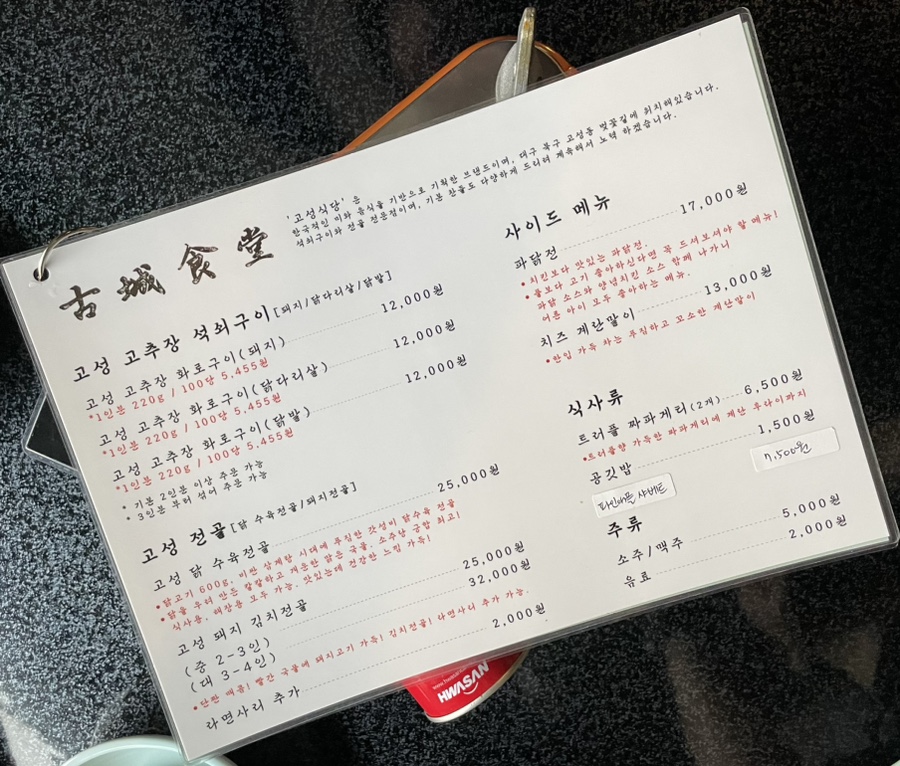 古城食堂
'고성식당' 은
한국적인 미와 음식을 기반으로 기획한 브랜드이며, 대구 북구 고성동 벚꽃길에 위치해있습니다.
석쇠구이와 전골 전문점이며, 기본 찬들도 다양하게 드리려 계속해서 노력 하겠습니다.
고성 고추장 석쇠구이[돼지/닭다리살/닭발]
고성 고추장 화로구이(돼지) 12,000원
*1인분 220g / 100당 5.455원
고성 고추장 화로구이(닭다리살) 12,000원
*1인분 220g / 100당 5.455원
고성 고추장 화로구이(닭발) 12,000원
*1인분 220g / 100당 5.455원
* 기본 2인분 이상 주문 가능
* 3인분 부터 섞어 주문 가능
고성 전골[닭 수육전골/돼지전골]
고성 닭 수육전골 25,000원
•닭고기 600g. 비싼 삼계탕 시대에 푸짐한 갓성비 닭수육 전골
•닭을 우려 만든 칼칼하고 개운한 맑은 국물. 소주랑 궁합 최고!
식사용, 해장용 모두 가능. 맛있는데 건강한 느낌 가득!
고성 돼지 김치전골
(중 2-3인) 25,000원
(대 3-4인) 32,000원
•단짠 매콤! 빨간 국물에 돼지고기 가득! 김치전골! 라면사리 추가 가능.
라면사리 추가 2,000원
사이드 메뉴
파닭전 17,000원
•치킨보다 맛있는 파닭전.
•물보다 고기 좋아하신다면 꼭 드셔보셔야 할 메뉴!
파닭 소스와 양념치킨 소스 함께 나가니
어른 아이 모두 좋아하는 메뉴.
치즈 계란말이 13,000원
•한입 가득 차는 푸짐하고 꼬소한 계란말이
식사류
트러플 짜파게티(2개) 6,500원
•트러플향 가득한 짜파게티에 계란 후라이까지
공깃밥 1,500원
파인애플 샤베트 7,500원
주류
소주/맥주 5,000원
음료 2,000원
HWASAN